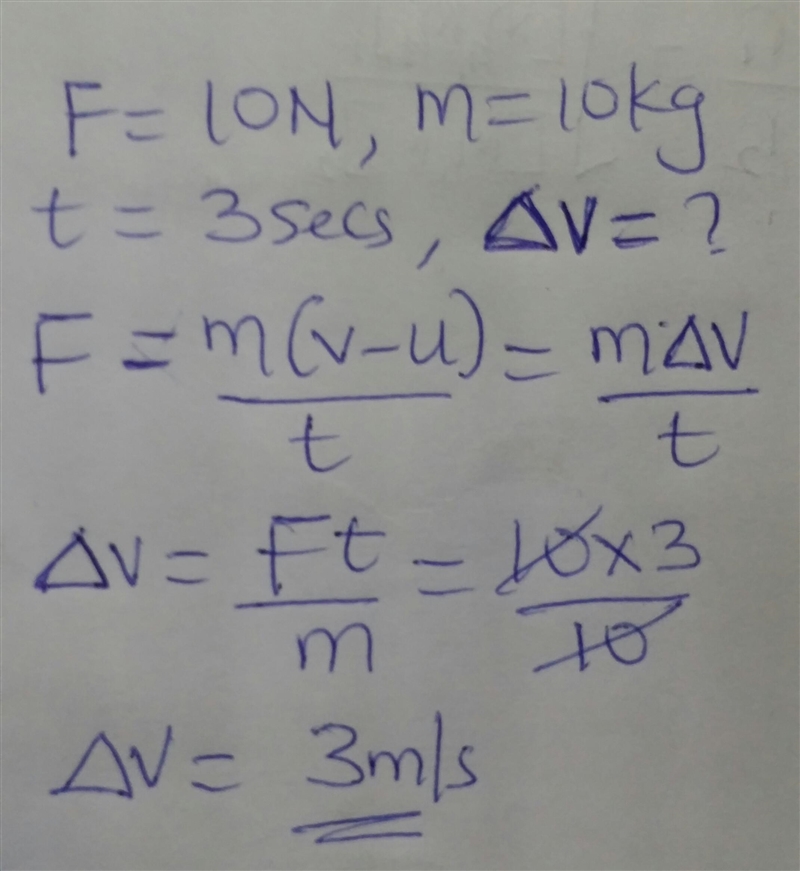 F = 10N, m = 10kg
t = 3secs, Δv = ?
F = m(v-u)/t = mΔv/t
Δv = Ft/m = 10x3/10
Δv = 3m/s